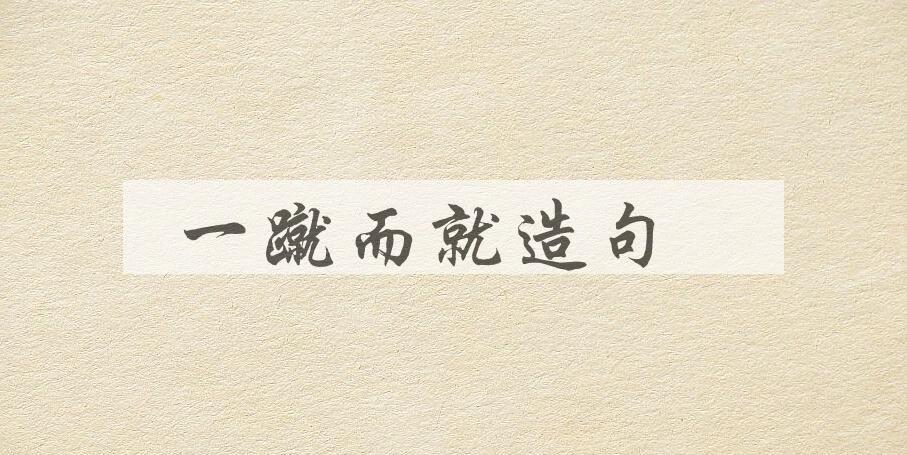 一蹴而就造句